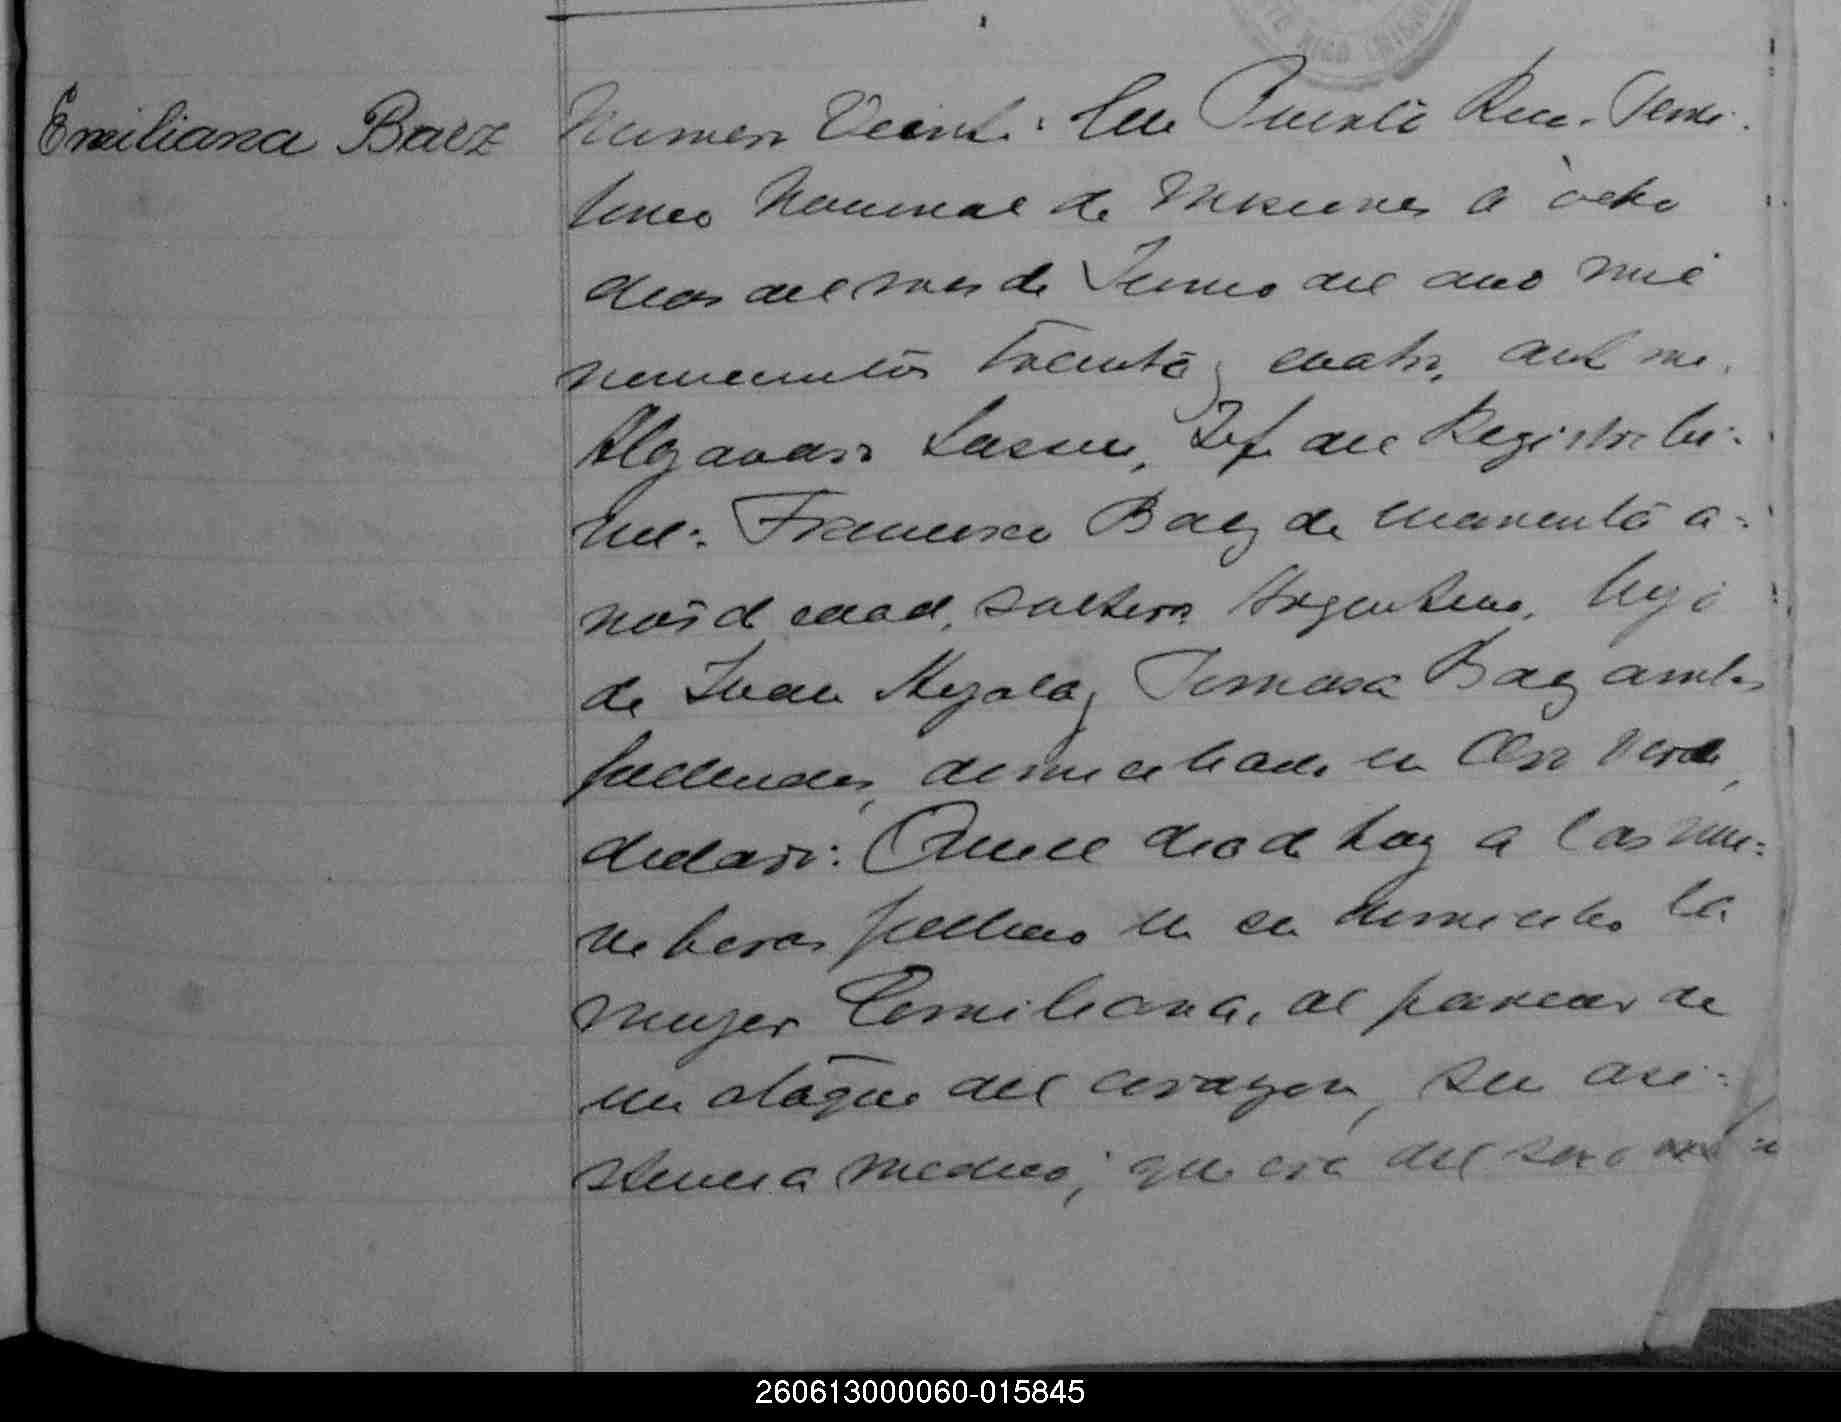 Emiliana Baez
Numero Veinte: En Puerto Rico. Terri-
torio Nacional de Misiones a ocho
dias del mes de Junio del año mil
novecientos treinta y cuatro, ante mi,
Jefe del Registro Ci-
vil: Francisco Baez de cuarenta a-
ños de edad, soltero Argentino, hijo
de Juan y Tomasa Baez ambos
fallecidos, domiciliado en Oro Verde,
declaro: Que el dia de hoy a las nue-
ve horas fallecio en su domicilio la
mujer Emiliana, al parecer de
un ataque del corazon, sin asi-
stencia medica; que era del sexo
260613000060-015845